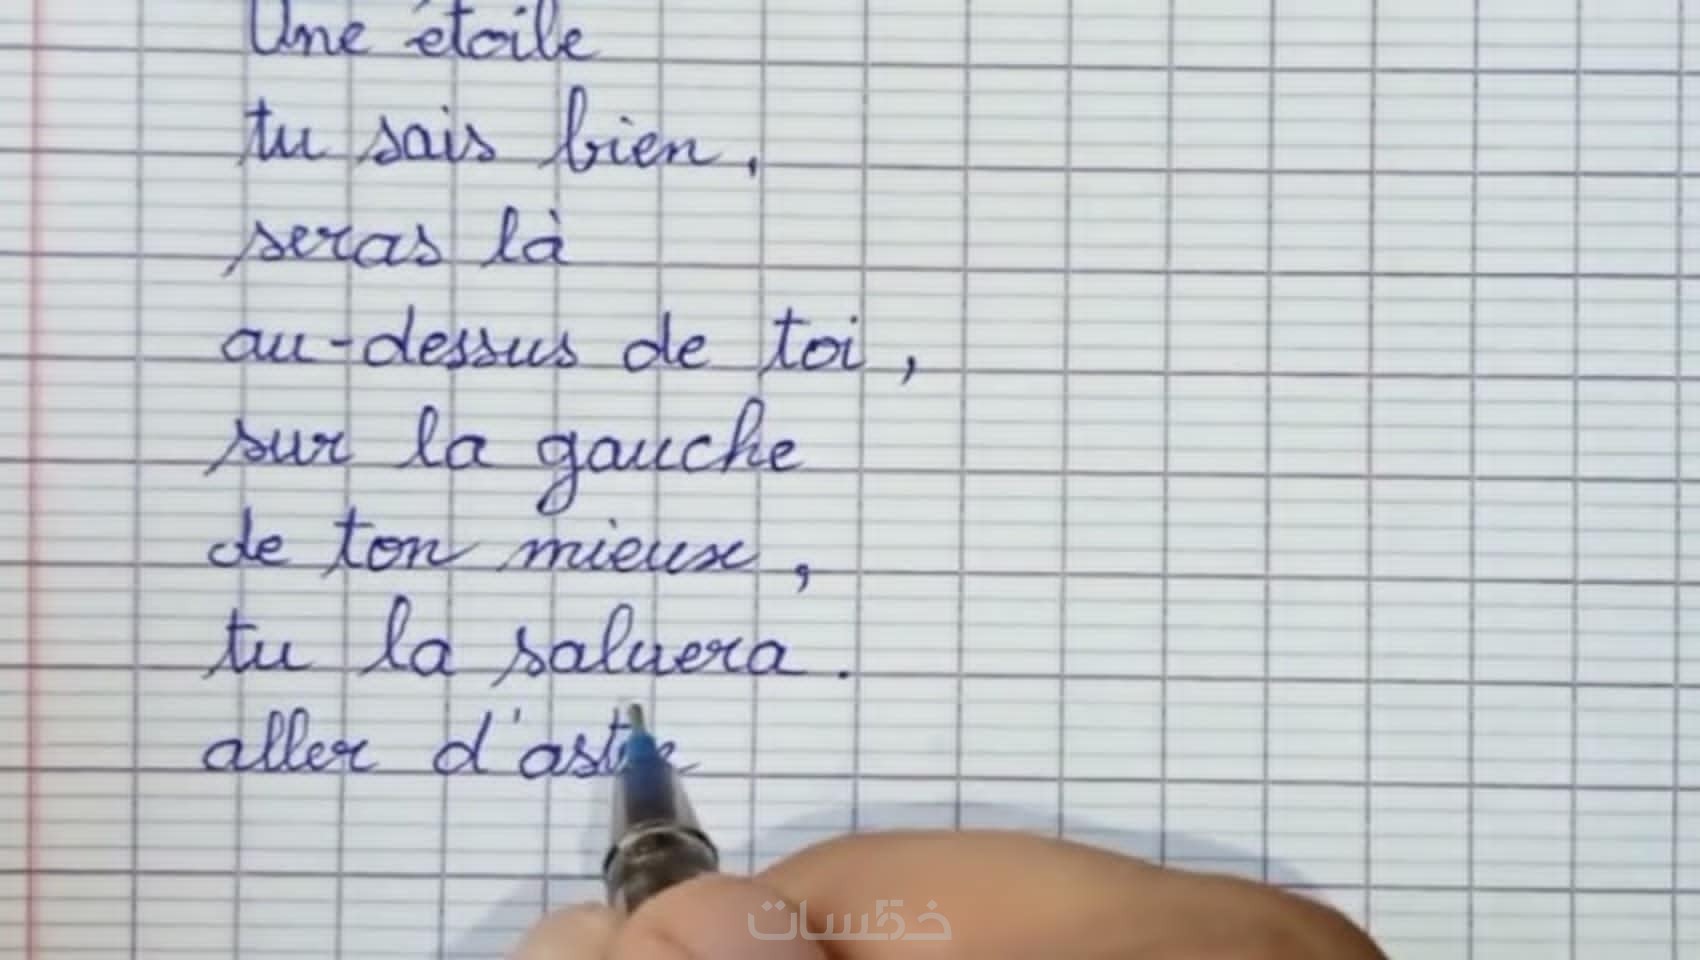 Une étoile
tu sais bien,
seras là
au-dessus de toi,
sur la gauche
de ton mieux,
tu la saluera.
aller d'astre
خمسات